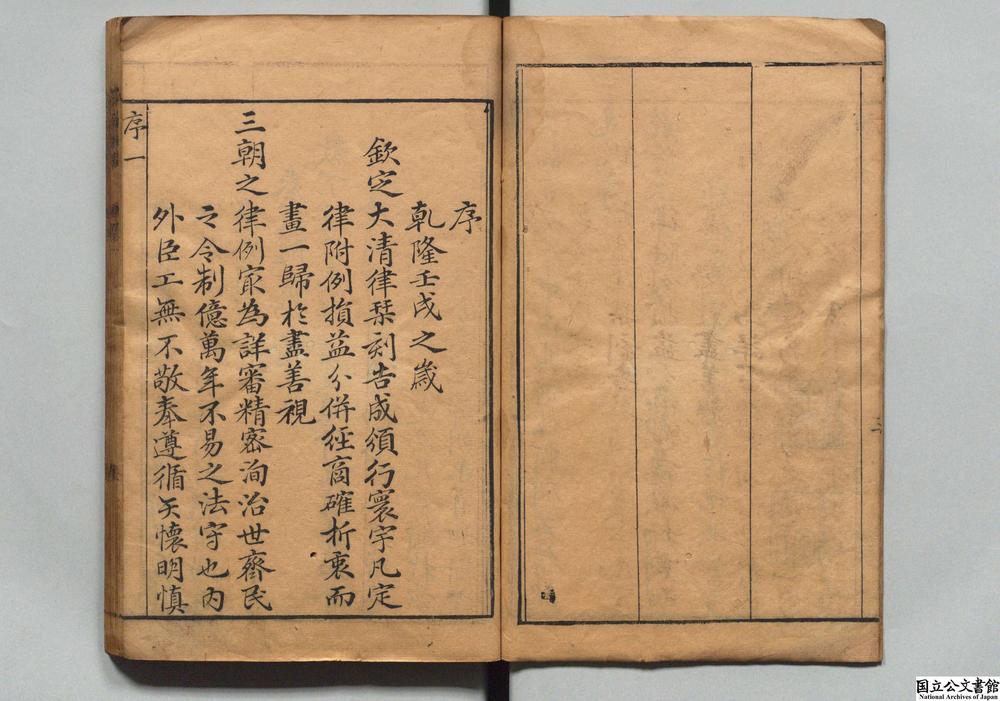 序
乾隆壬戌之歲
欽定大清律栞刻告成頒行寰宇凡定
律附例損益分併經商確折衷而
畫一歸於盡善視
三朝之律例寂為詳審精密洵治世齊民
之令制億萬年不易之法守也內
外臣工無不敬奉遵循矢懷明慎
序一
国立公文書館
National Archives of Japan